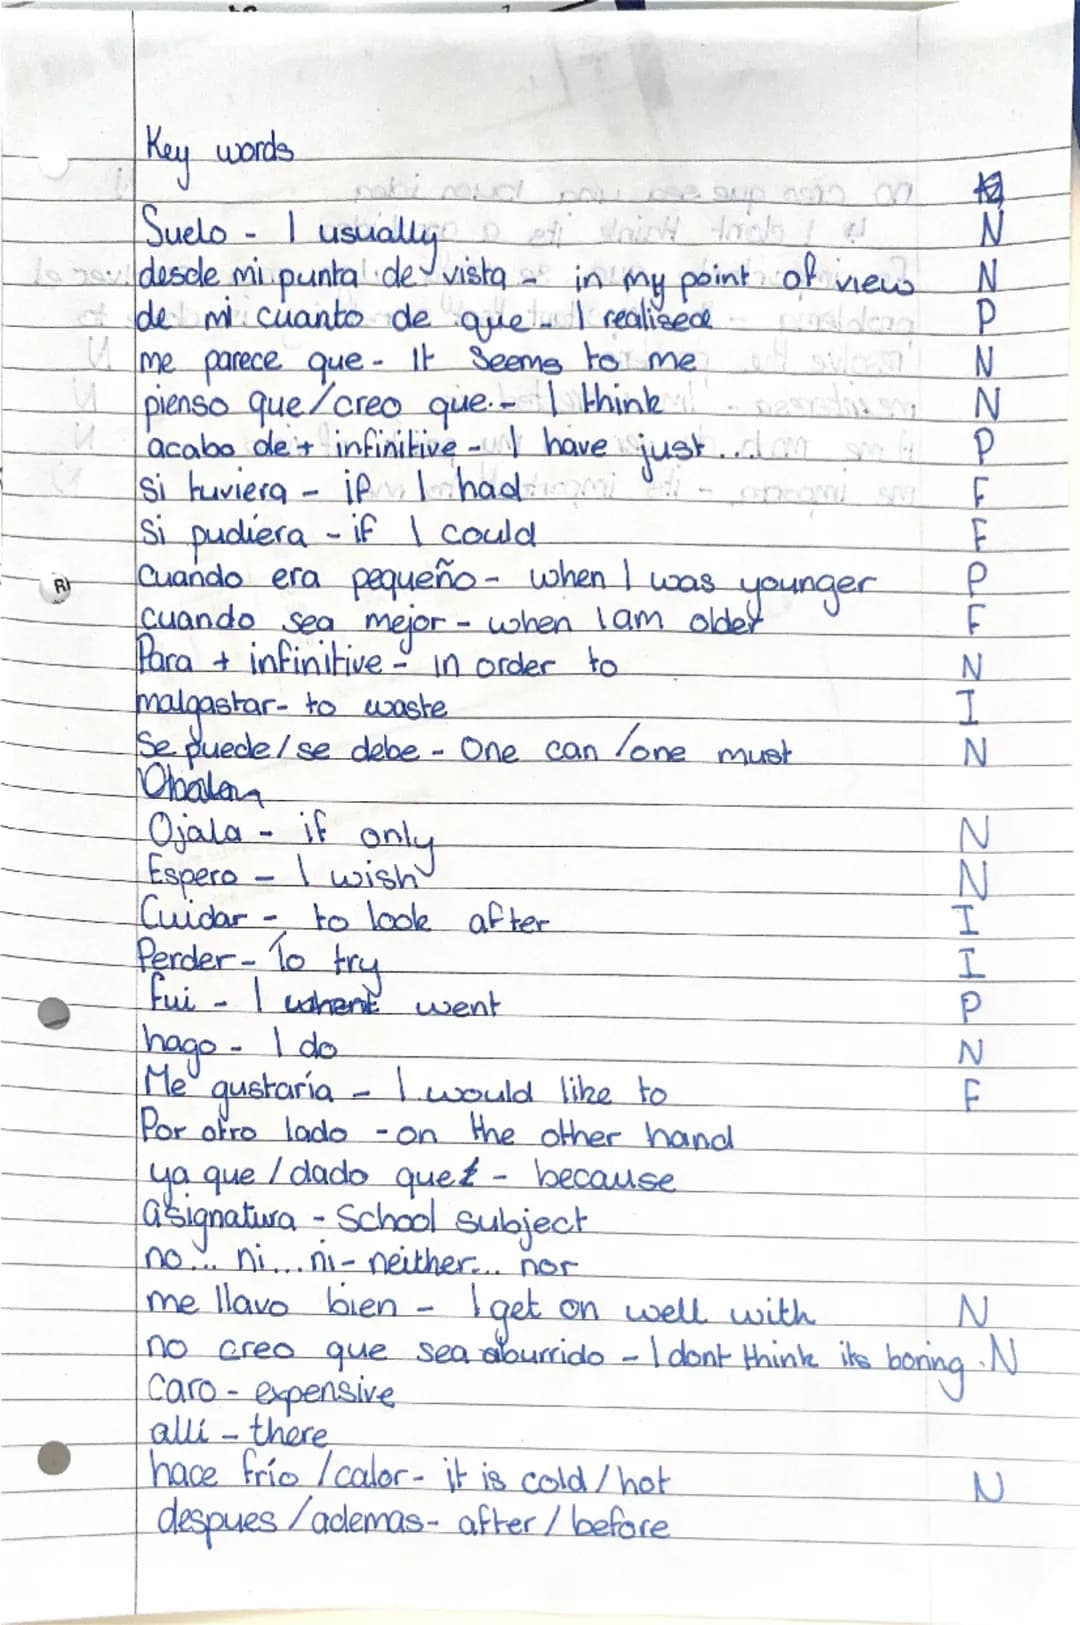 Key words
Suelo - I usually N
desde mi punta de vista - in my point of view N
de mi cuanto de que - I realised P
me parece que - It Seems to me N
pienso que/creo que - I think N
acabo de + infinitive - I have just... P
Si tuviera - if I had F
Si pudiera - if I could F
Cuando era pequeño - when I was younger P
cuando sea mejor - when I am older F
Para + infinitive - in order to N
malgastar - to waste I
Se puede/se debe - One can/one must N
Ojala - if only N
Espero - I wish N
Cuidar - to look after I
Perder - To try I
fui - I went P
hago - I do N
Me gustaría - I would like to F
Por otro lado - on the other hand
ya que/dado que - because
asignatura - School subject
no... ni... ni - neither... nor
me llavo bien - I get on well with N
no creo que sea aburrido - I dont think its boring. N
Caro - expensive
allí - there
hace frío/calor - it is cold/hot N
despues/ademas - after/before